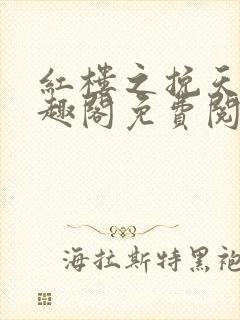 红樓之挽天
趣閣免費閱
海拉斯特黑袍